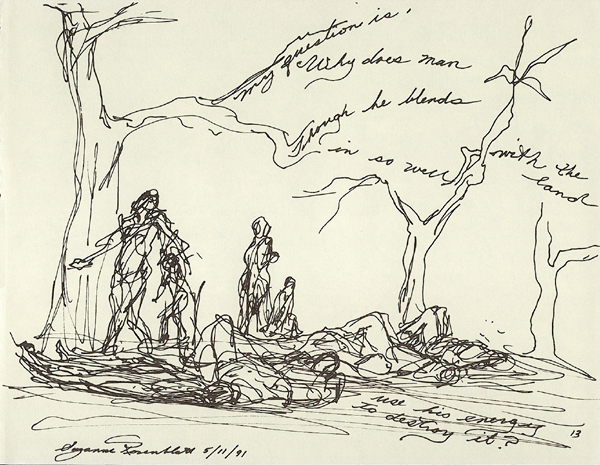 my question is,
Why does man
though he blends
in so well with the
land
use his energy
to destroy it?
13
Suzanne Rosenblatt 5/11/91